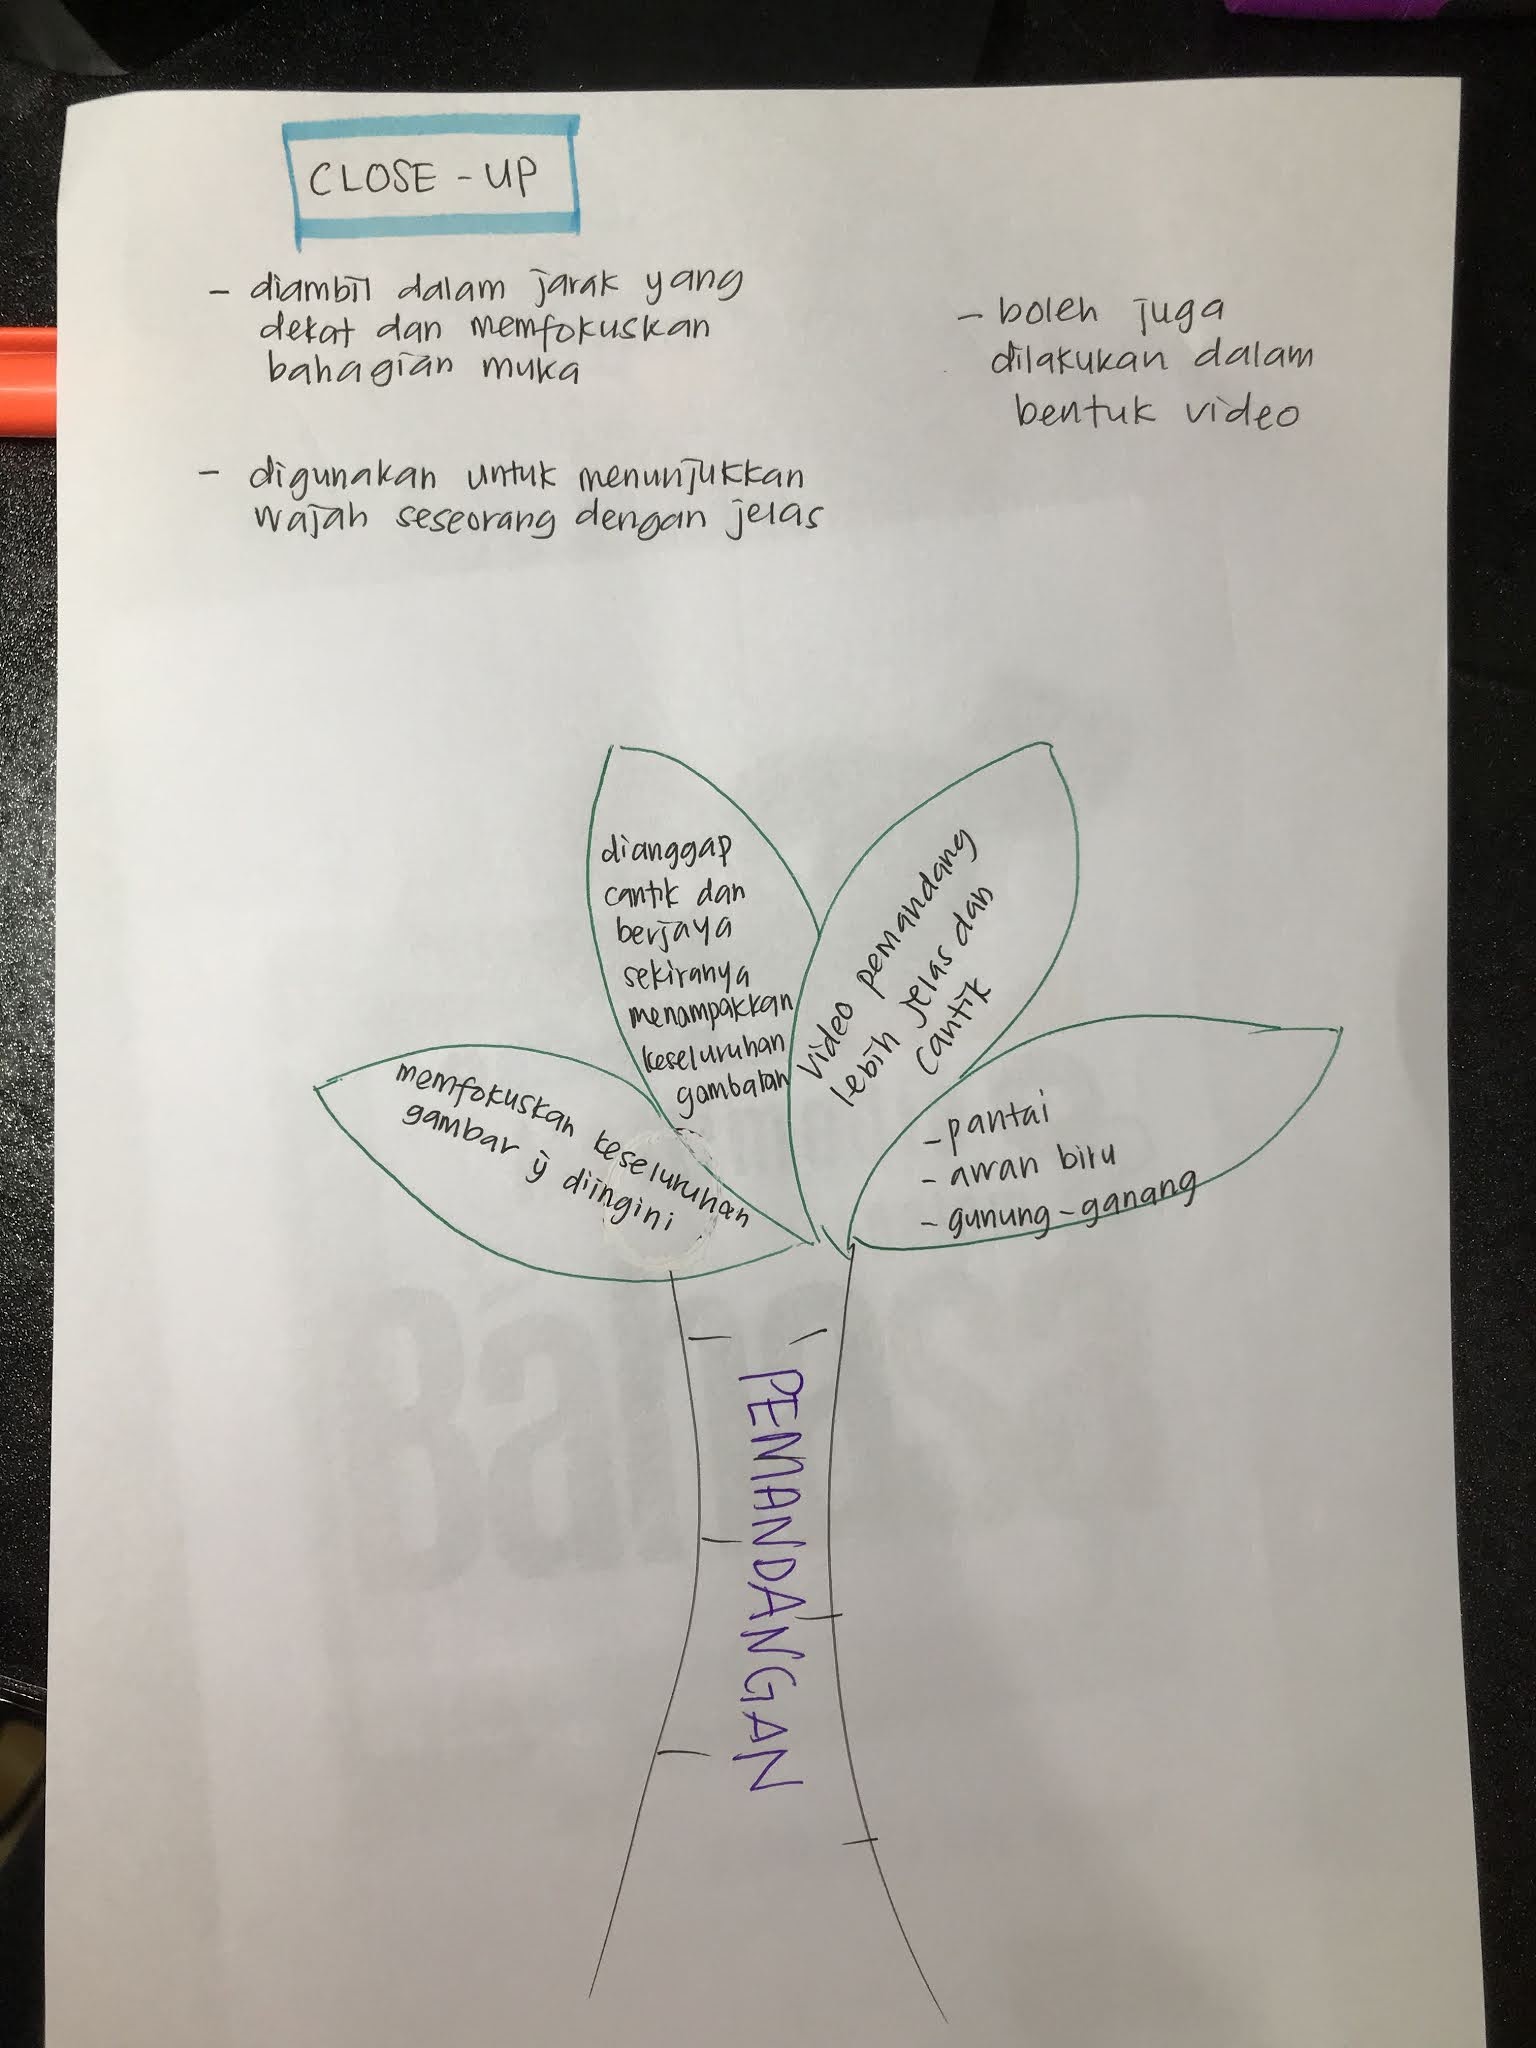 CLOSE - UP
- diambil dalam jarak yang
dekat dan memfokuskan
bahagian muka
- digunakan untuk menunjukkan
wajah seseorang dengan jelas
- boleh juga
dilakukan dalam
bentuk video
memfokuskan keseluruhan
gambar ӯ diingini
dianggap
cantik dan
berjaya
sekiranya
menampakkan
keseluruhan
gambaran
video pemandang
lebih jelas dan
cantik
- pantai
- awan biru
- gunung-ganang
PEMANDANGAN